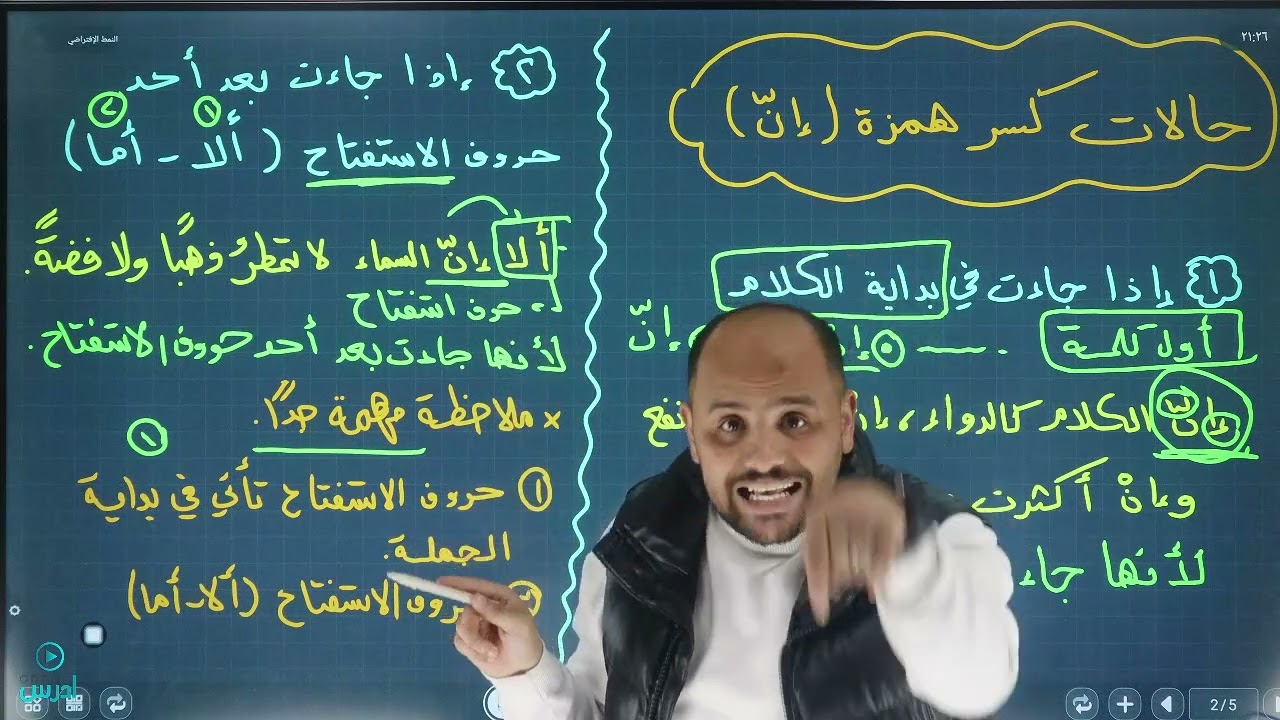 النمط الإفتراضي
٢١:٢٦
حالات كسر همزة (إنّ)
١ إذا جاءت في بداية الكلام
أول كلمة . إنّ
إنّ الكلام كالدواء، نفع
وإنْ أكثرت
لأنها جاء
٢ إذا جاءت بعد أحد
١ ٢
حروف الاستفتاح (ألا - أما)
ألا إنّ السماء لا تمطرُ ذهبًا ولا فضةً.
حرف استفتاح
لأنها جاءت بعد أحد حروف الاستفتاح.
× ملاحظة مهمة جدًا.
١
١ حروف الاستفتاح تأتي في بداية
الجملة.
الاستفتاح (ألا - أما)
ادرس
2/5